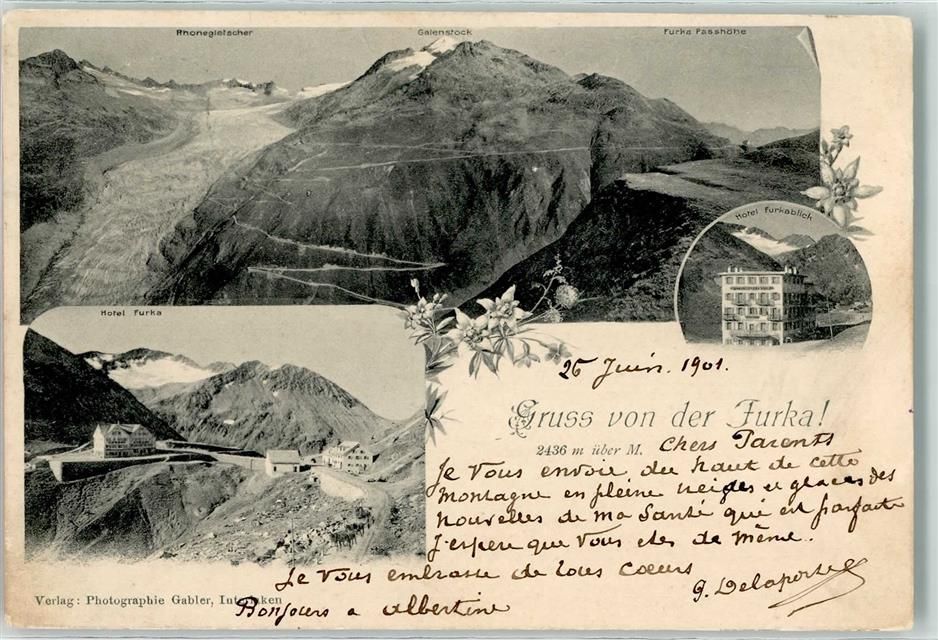 Rhonegletscher Galenstock Furka Passhöhe
Hotel Furkablick
Hotel Furka
26 Juin. 1901.
Gruss von der Furka!
2436 m über M.
Chers Parents
Je Vous envoie du haut de cette
montagne en pleine neiges et glaces des
nouvelles de ma Santé qui est parfaite
J'espere que Vous etes de même.
Je Vous embrasse de tous cœurs
G. Delaporte
Bonjours a Albertine
Verlag: Photographie Gabler, Interlaken